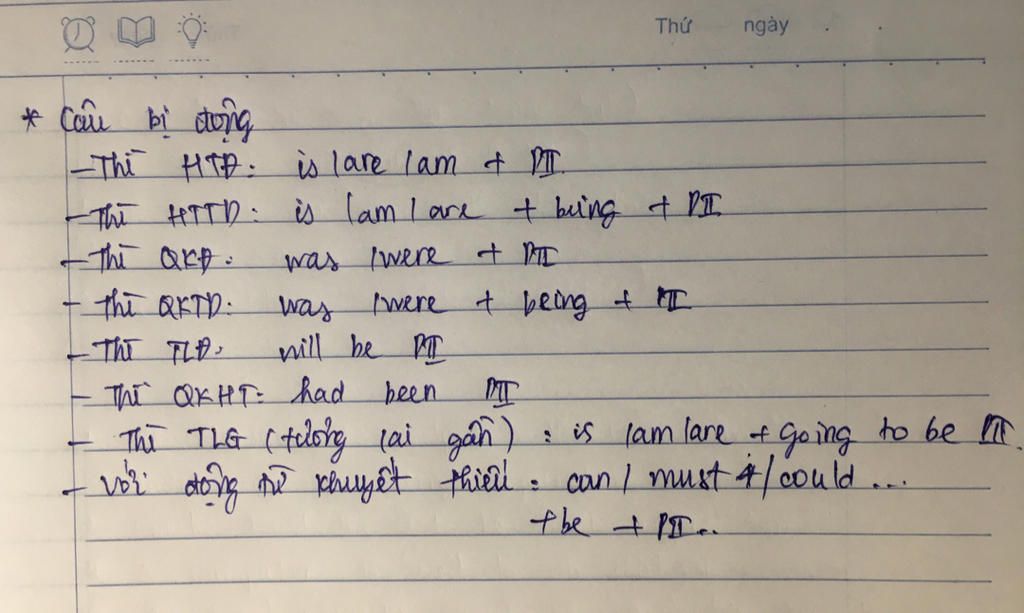 Thứ ngày . .
* Câu bị động
- Thì HTĐ: is / are / am + PII.
- Thì HTTD: is / am / are + being + PII
- Thì QKĐ: was / were + PII
- Thì QKTD: was / were + being + PII
- Thì TLĐ: will be PII
- Thì QKHT: had been PII
- Thì TLG (tương lai gần) : is / am / are + going to be PII.
- Với động từ khuyết thiếu: can / must / could ...
+ be + PII..